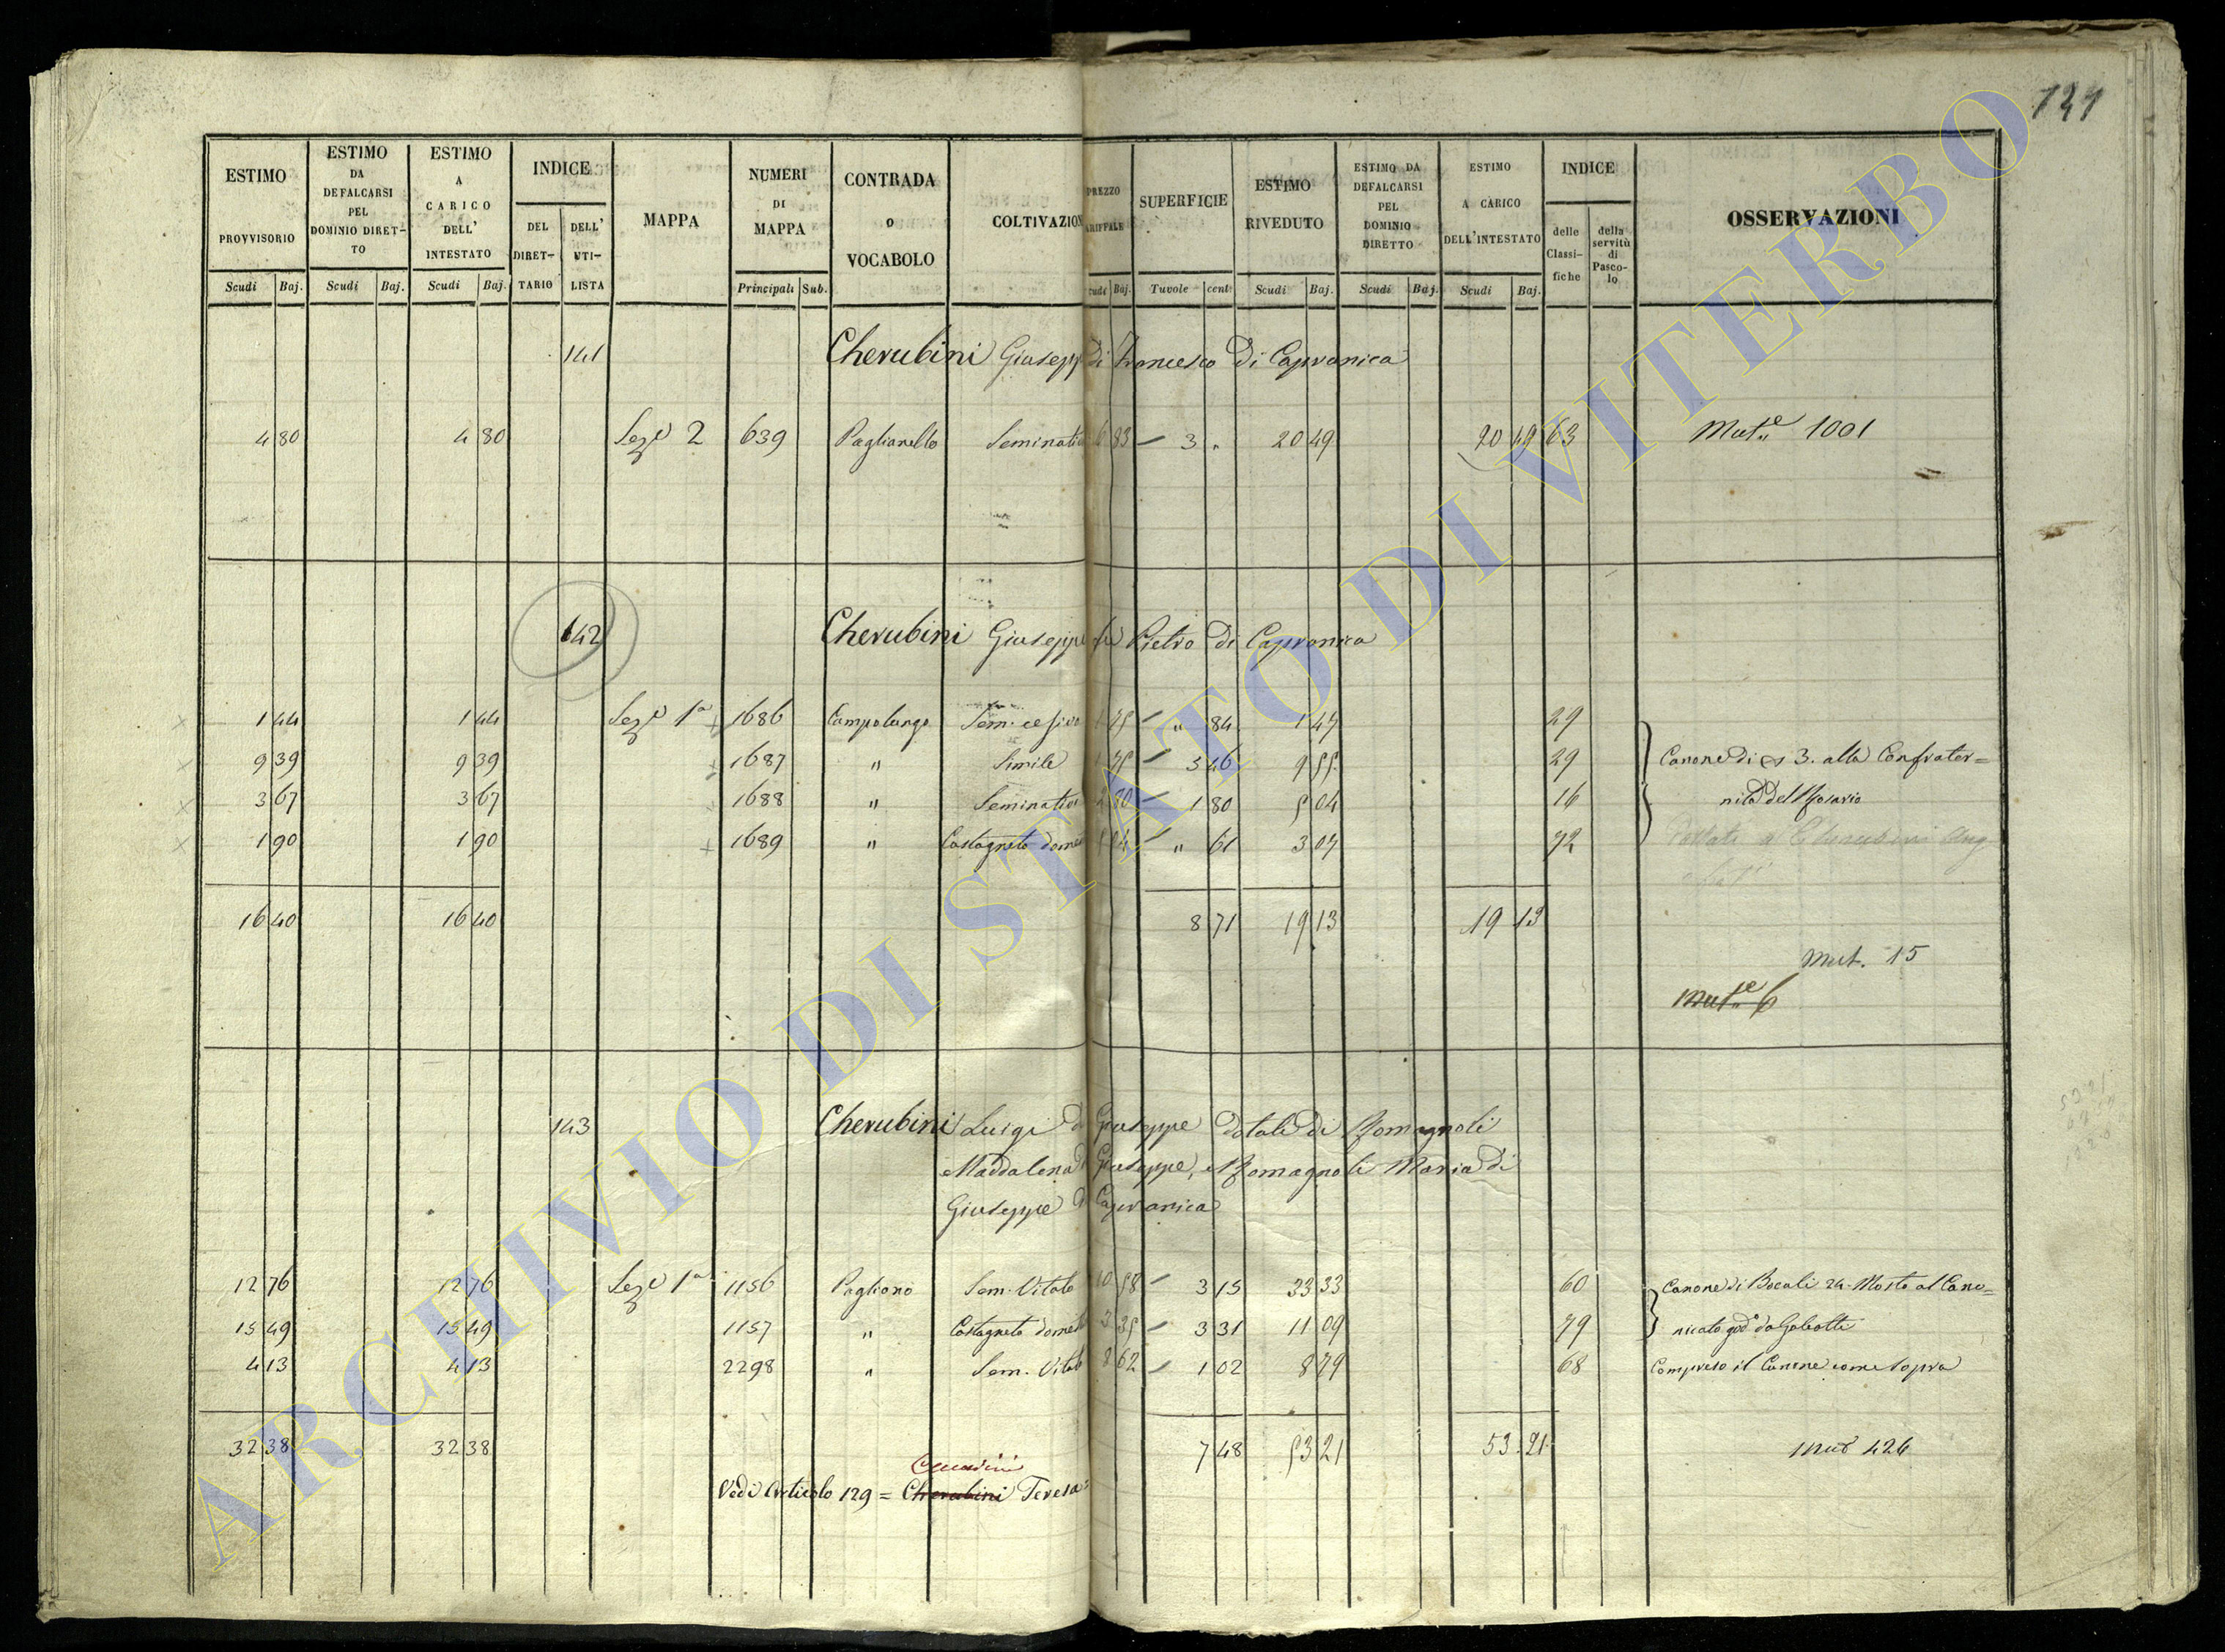 121
ESTIMO PROVVISORIO
ESTIMO DA DEFALCARSI PEL DOMINIO DIRETTO
ESTIMO A CARICO DELL' INTESTATO
INDICE
DEL DIRETTARIO
DELL' UTILISTA
MAPPA
NUMERI DI MAPPA
CONTRADA O VOCABOLO
COLTIVAZION
PREZZO
SUPERFICIE
ESTIMO RIVEDUTO
ESTIMO DA DEFALCARSI PEL DOMINIO DIRETTO
ESTIMO A CARICO DELL'INTESTATO
INDICE
delle Classifiche
della servitù di Pascolo
OSSERVAZIONI
Scudi Baj. Scudi Baj. Scudi Baj. Principali Sub. Baj. Tavole cent. Scudi Baj. Scudi Baj. Scudi Baj.
141 Cherubini Giuseppe di Francesco di Capranica
4 80 4 80 Sez.e 2 639 Paglianello Seminativo 6 83 3 " 20 49 20 49 63 Mut.e 1001
142 Cherubini Giuseppe fu Pietro di Capranica
1 44 1 44 Sez.e 1a 1686 Campolungo 1 75 " 84 1 47 29
9 39 9 39 1687 " Simile 1 75 5 46 9 55 29 Canone di 3. alla Confrater=
3 67 3 67 1688 " Seminativo 2 80 1 80 5 04 16 nita del Rosario
1 90 1 90 1689 " Castagneto domes 5 04 " 61 3 07 72 Cherubini Ang
16 40 16 40 8 71 19 13 19 13
Mut. 15
Mut.e 6
143 Cherubini Luigi di Giuseppe dotali di Romagnoli
Maddalena di Giuseppe, e Romagnoli Maria di
Giuseppe di Capranica
12 76 12 76 Sez.e 1a 1156 Pagliano Sem. Vitato 10 58 3 15 33 33 60 Canone di Bocali 24 Mosto al Cano=
15 49 15 49 1157 " Castagneto domes 3 35 3 31 11 09 79 nicato god.o da Galeotti
4 13 4 13 2298 " Sem. Vitato 8 62 1 02 8 79 68 Compreso il Canone come sopra
32 38 32 38 7 48 53 21 53 21 Mut 426
Vedi Articolo 129 = Cherubini Teresa
ARCHIVIO DI STATO DI VITERBO